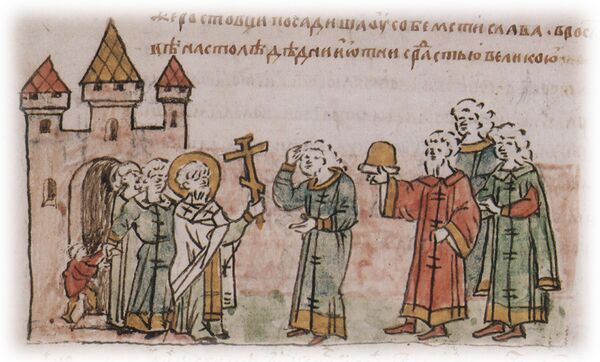 же ростовци посадиша оу собе мстислава · в рос
цѣ на столѣ дѣдни и ѿтни с раⷣстью великою